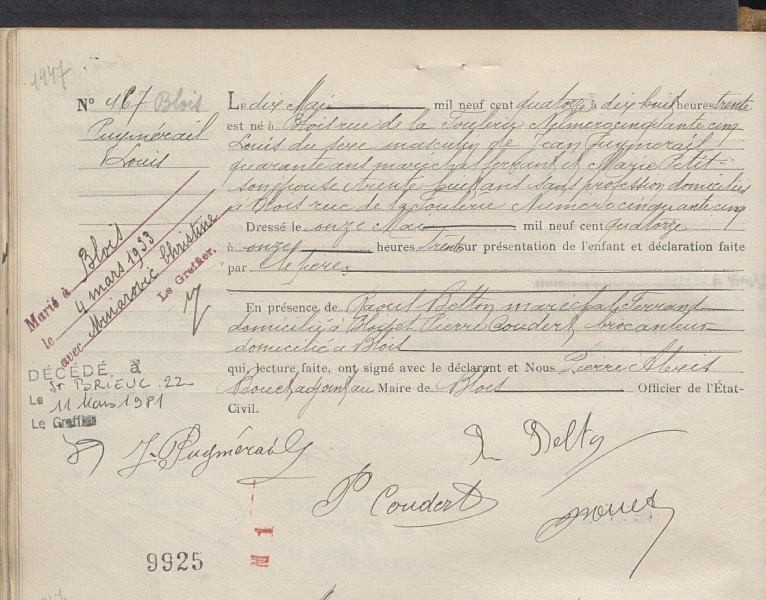 1947
N° 167 Blois
Puymerail
Louis
Le dix Mai, mil neuf cent quatorze à dix huit heures trente
est né à Blois rue de la Tuilerie Numéro cinquante cinq
Louis du sexe masculin de Jean Puymerail
quarante ans maréchal ferrant et Marie Petit
son épouse trente huit ans sans profession domiciliés
à Blois rue de la Tuilerie Numéro cinquante cinq
Dressé le onze Mai mil neuf cent quatorze
à onze heures trente sur présentation de l'enfant et déclaration faite
par le père
En présence de Raoul Belton maréchal Ferrant
domicilié à Blois et Pierre Coudert, brocanteur
domicilié à Blois
qui, lecture faite, ont signé avec le déclarant et Nous Pierre Alexis
adjoint au Maire de Blois Officier de l'État-
Civil.
Marié à Blois
le 4 mars 1933
avec Christine
Le Greffier,
DÉCÉDÉ à
St BRIEUC. 22
Le 11 Mars 1981
Le Greffier
J. Puymérail
Belton
P Coudert
9925